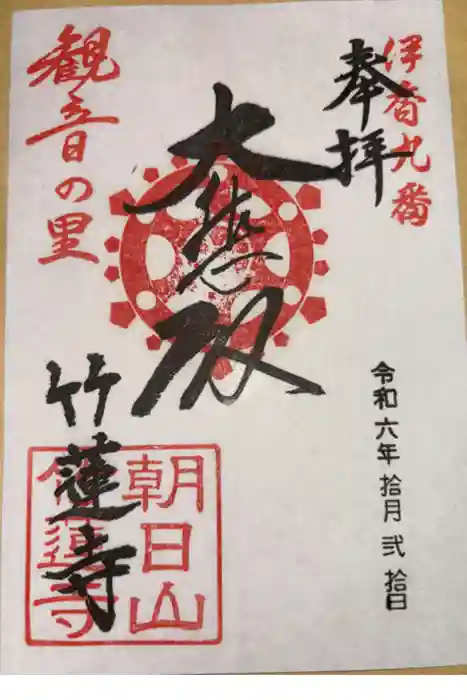 伊香九番
奉拝
大悲殿
観音の里
竹蓮寺
朝日山
竹蓮寺
令和六年拾月弐拾日